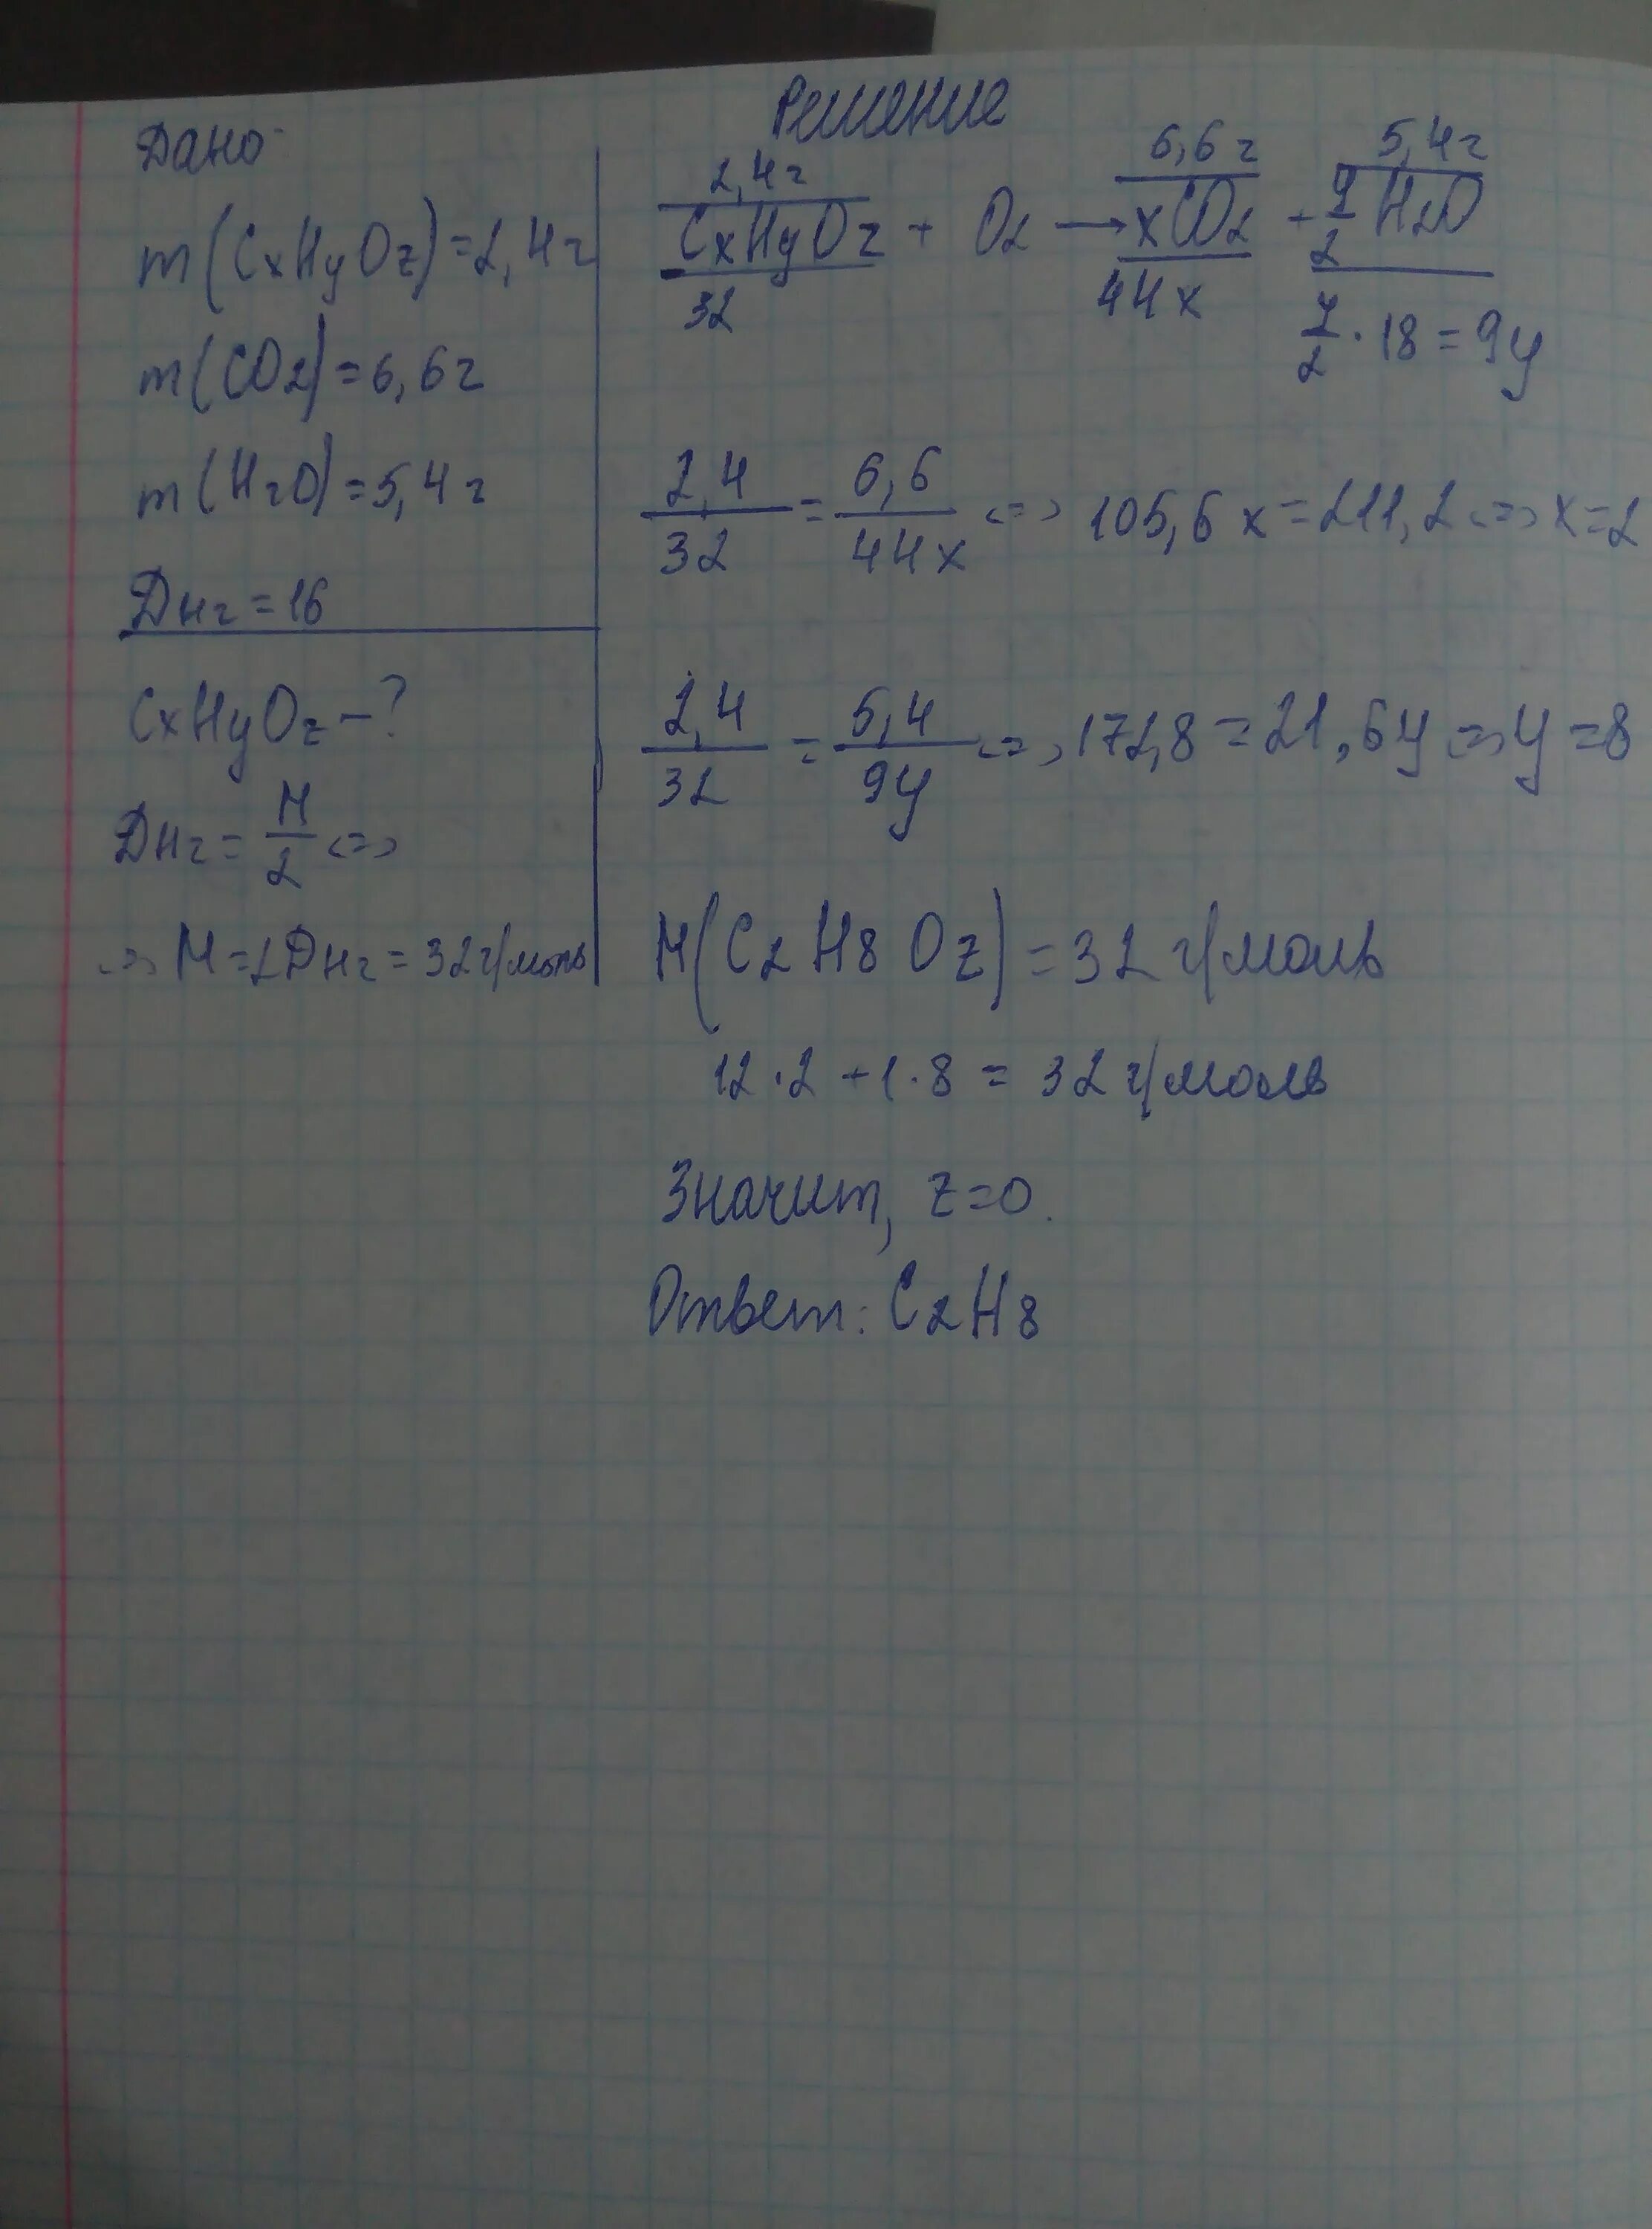 Дано
m(CxHyOz)=2,4г
m(CO2)=6,6г
m(H2O)=5,4г
DH2=16
CxHyOz-?
DH2=M/2 <=>
=> M=2DH2=32г/моль
Решение
2,4г 6,6г 5,4г
CxHyOz + O2 → xCO2 + y/2 H2O
32 44x y/2 · 18 = 9y
2,4/32 = 6,6/44x <=> 105,6x=211,2 <=> x=2
2,4/32 = 5,4/9y <=> 172,8=21,6y <=> y=8
M(C2H8Oz)=32 г/моль
12·2+1·8=32 г/моль
Значит, z=0.
Ответ: C2H8